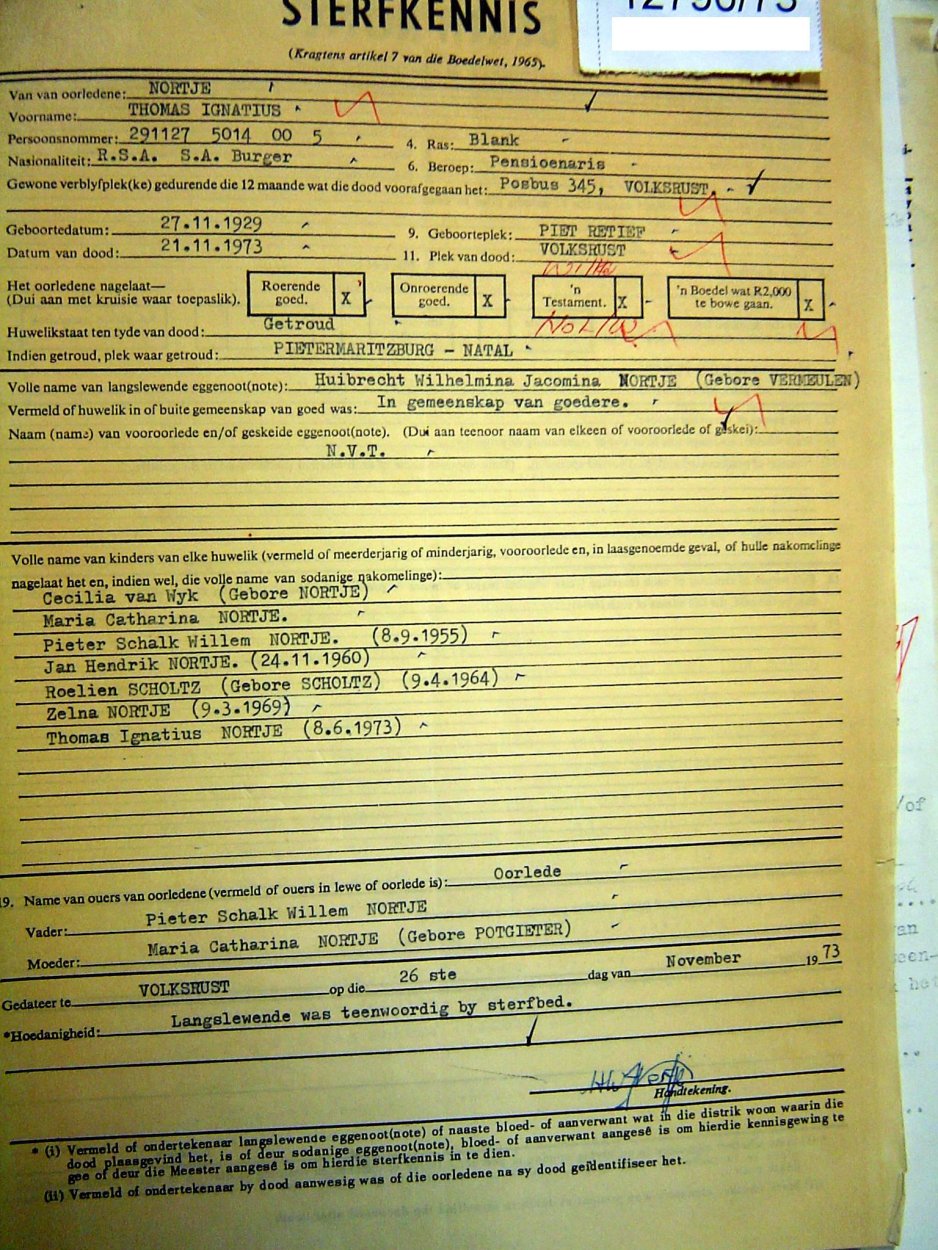 STERFKENNIS
(Kragtens artikel 7 van die Boedelwet, 1965).
Van van oorledene: NORTJE
Voorname: THOMAS IGNATIUS
Persoonsnommer: 291127 5014 00 5 4. Ras: Blank
Nasionaliteit: R.S.A. S.A. Burger 6. Beroep: Pensioenaris
Gewone verblyfplek(ke) gedurende die 12 maande wat die dood voorafgegaan het: Posbus 345, VOLKSRUST.
Geboortedatum: 27.11.1929 9. Geboorteplek: PIET RETIEF
Datum van dood: 21.11.1973 11. Plek van dood: VOLKSRUST
Het oorledene nagelaat—
(Dui aan met kruisie waar toepaslik).
Roerende goed. X
Onroerende goed. X
'n Testament. X
'n Boedel wat R2,000 te bowe gaan. X
Huwelikstaat ten tyde van dood: Getroud
Indien getroud, plek waar getroud: PIETERMARITZBURG - NATAL
Volle name van langslewende eggenoot(note): Huibrecht Wilhelmina Jacomina NORTJE (Gebore VERMEULEN)
Vermeld of huwelik in of buite gemeenskap van goed was: In gemeenskap van goedere.
Naam (name) van vooroorlede en/of geskeide eggenoot(note). (Dui aan teenoor naam van elkeen of vooroorlede of geskei):
N.V.T.
Volle name van kinders van elke huwelik (vermeld of meerderjarig of minderjarig, vooroorlede en, in laasgenoemde geval, of hulle nakomelinge
nagelaat het en, indien wel, die volle name van sodanige nakomelinge):
Cecilia van Wyk (Gebore NORTJE)
Maria Catharina NORTJE.
Pieter Schalk Willem NORTJE. (8.9.1955)
Jan Hendrik NORTJE. (24.11.1960)
Roelien SCHOLTZ (Gebore SCHOLTZ) (9.4.1964)
Zelna NORTJE (9.3.1969)
Thomas Ignatius NORTJE (8.6.1973)
19. Name van ouers van oorledene (vermeld of ouers in lewe of oorlede is): Oorlede
Vader: Pieter Schalk Willem NORTJE
Moeder: Maria Catharina NORTJE (Gebore POTGIETER)
Gedateer te VOLKSRUST op die 26 ste dag van November 1973
*Hoedanigheid: Langslewende was teenwoordig by sterfbed.
Handtekening.
* (i) Vermeld of ondertekenaar langslewende eggenoot(note) of naaste bloed- of aanverwant wat in die distrik woon waarin die
dood plaasgevind het, is of deur sodanige eggenoot(note), bloed- of aanverwant aangesê is om hierdie kennisgewing te
gee of deur die Meester aangesê is om hierdie sterfkennis in te dien.
(ii) Vermeld of ondertekenaar by dood aanwesig was of die oorledene na sy dood geïdentifiseer het.
/of